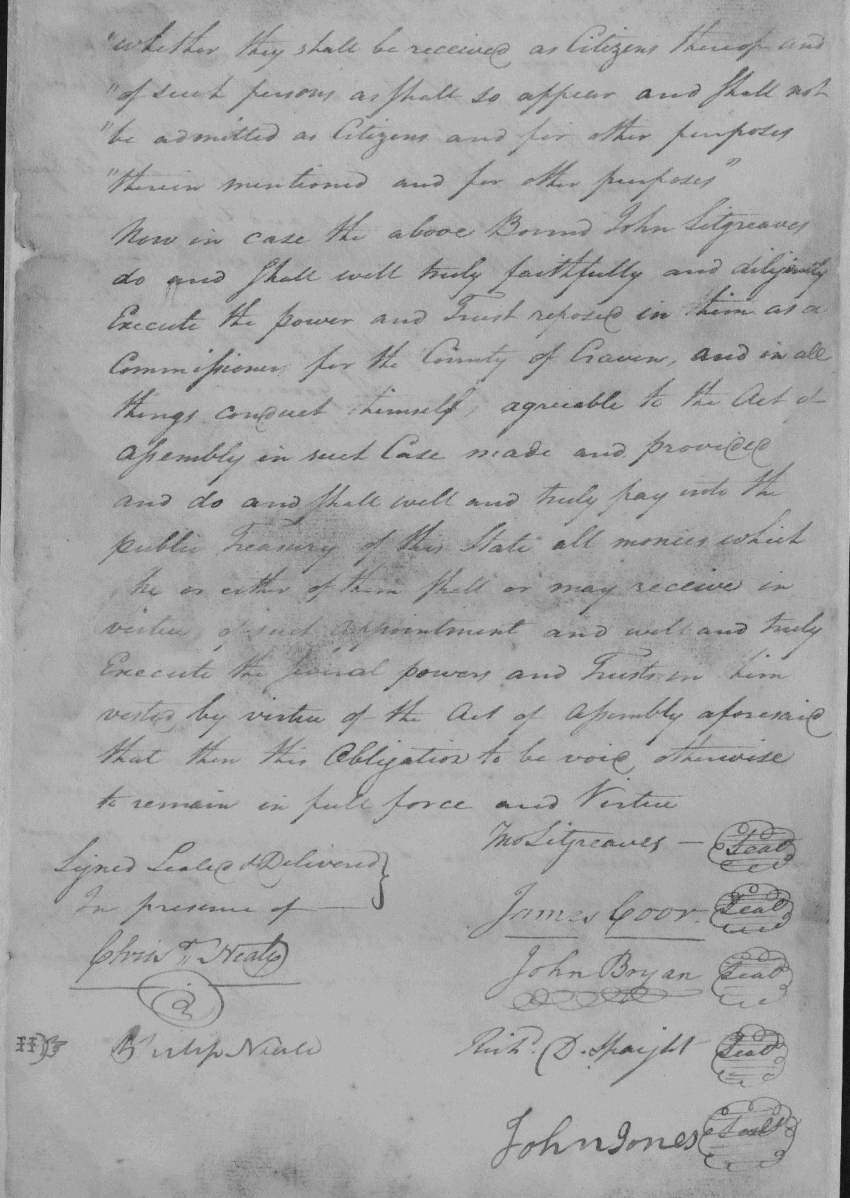 "whether they shall be received as Citizens thereof and
"of such persons as shall so appear and shall not
"be admitted as Citizens and for other purposes
"therein mentioned and for other purposes"
Now in case the above Bound John Sitgreaves
do and shall well truly faithfully and diligently
Execute the power and Trust reposed in them as a
Commissioner for the County of Craven, and in all
things conduct himself, agreeable to the Act of
Assembly in such Case made and provided
and do and shall well and truly pay into the
public Treasury of this State all monies which
he or either of them shall or may receive in
virtue of such appointment and well and truly
Execute the several powers and Trusts in him
vested by virtue of the Act of Assembly aforesaid
that then this Obligation to be void, otherwise
to remain in full force and Virtue
Jno Sitgreaves — Seal
Signed Sealed & Delivered
In presence of —
James Coor Seal
Chrisr. Neale
John Bryan Seal
Philip Neale
Richd. D. Spaight Seal
John Jones Seal